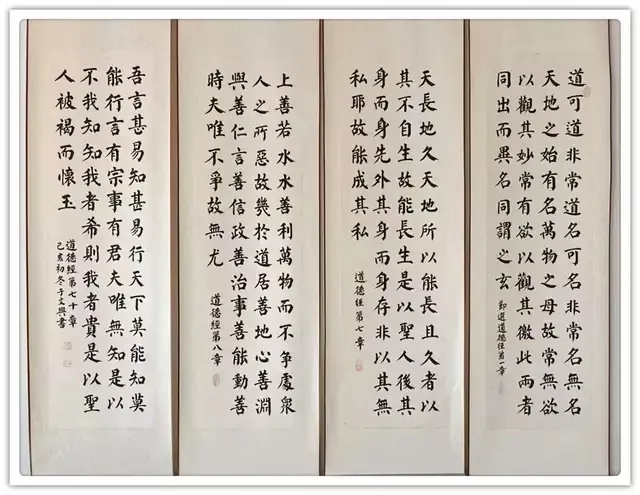 道可道非常道名可名非常名無名
天地之始有名萬物之母故常無欲
以觀其妙常有欲以觀其徼此兩者
同出而異名同謂之玄
節選道德經第一章
天長地久天地所以能長且久者以
其不自生故能長生是以聖人後其
身而身先外其身而身存非以其無
私耶故能成其私
道德經第七章
上善若水水善利萬物而不爭處衆
人之所惡故幾於道居善地心善淵
與善仁言善信政善治事善能動善
時夫唯不爭故無尤
道德經第八章
吾言甚易知甚易行天下莫能知莫
能行言有宗事有君夫唯無知是以
不我知知我者希則我者貴是以聖
人被褐而懷玉
道德經第七十章
己亥初冬于文興書